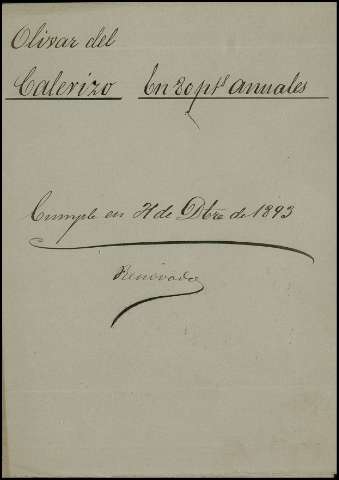 Olivar del
Calerizo En 20 pts anuales
Cumple en 31 de Dbre de 1893
Renovado